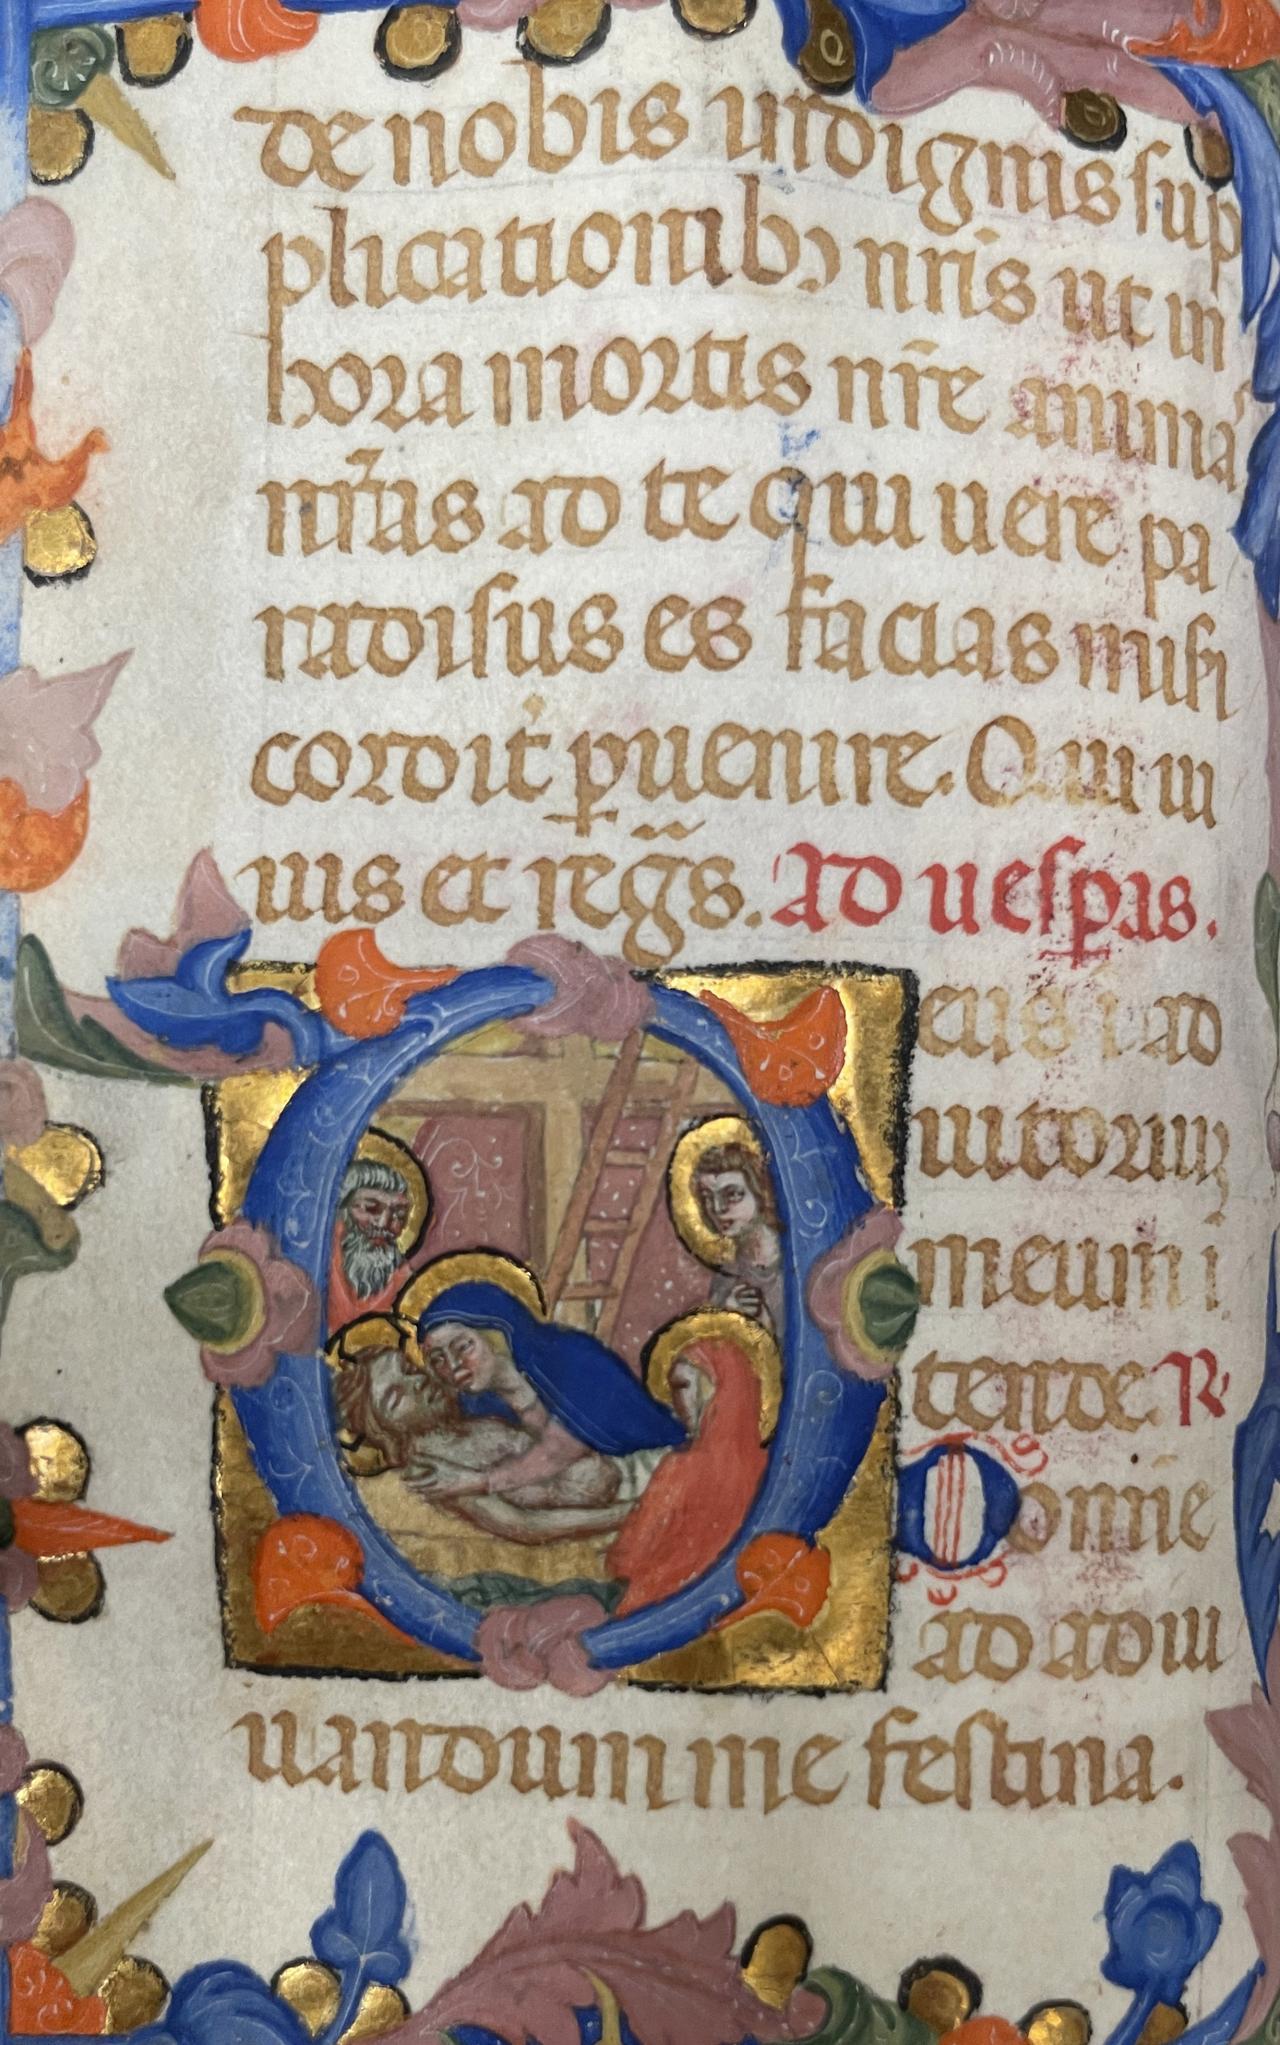 de nobis indignis sup
plicationibꝫ nr̄is ut in
hora mortis nr̄e animā
nr̄as ad te qui uere pa
radisus es facias misi
cordit̓ ꝑuenire. Qui ui
uis et reḡs. Ad uesꝑas.
eus ī ad
iutoriuꝫ
meum ī
tende R
Domīe
ad adiu
uandum me festina.